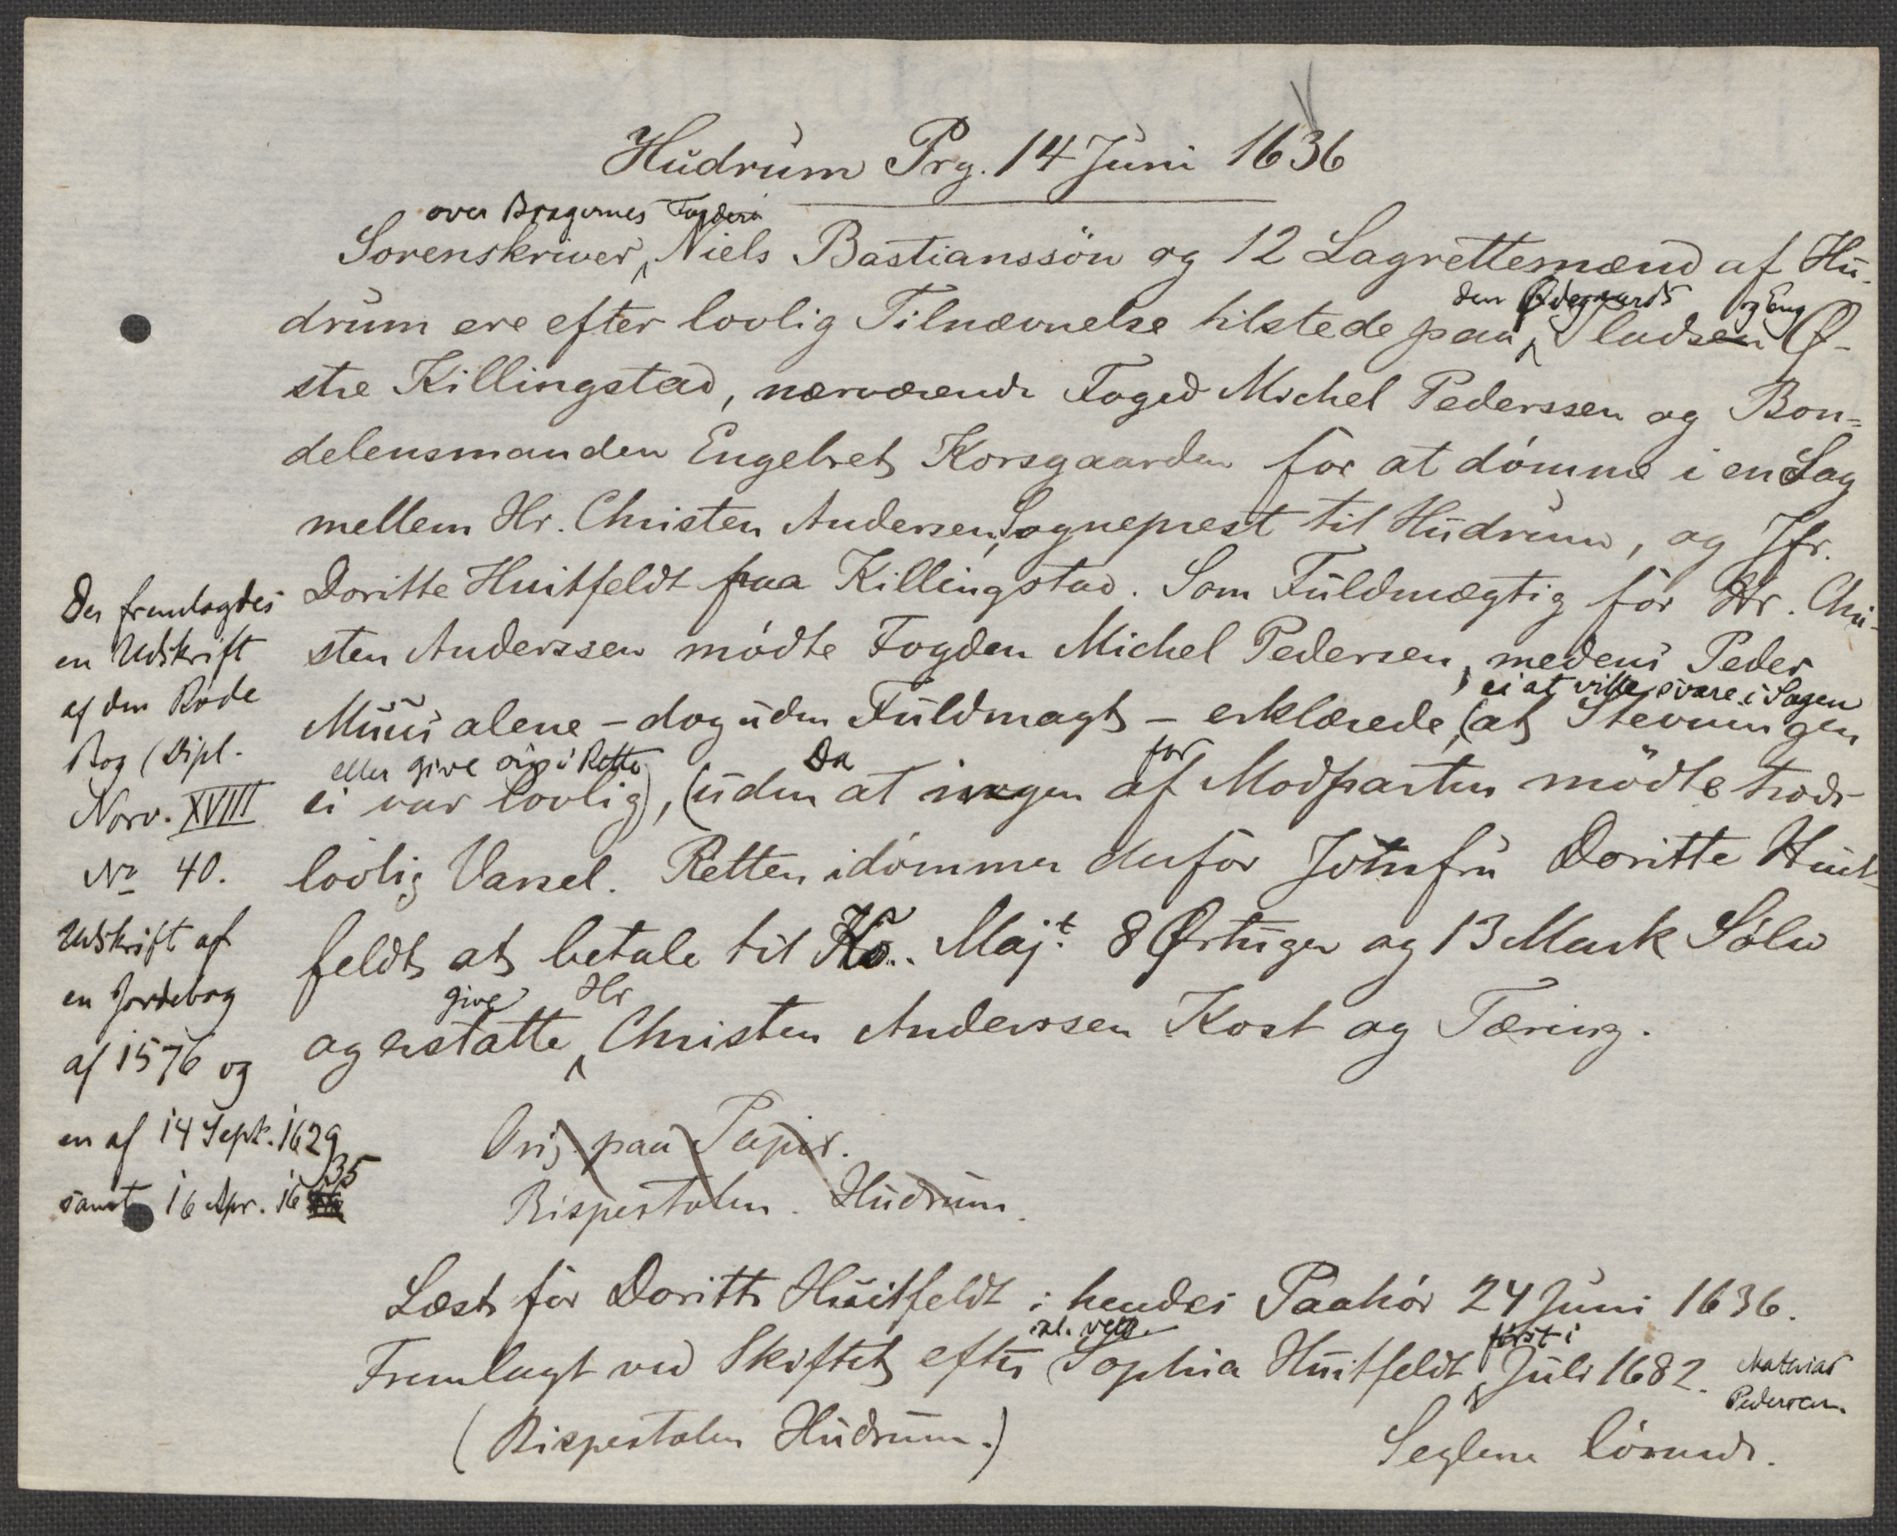 Hudrum Prg. 14 Juni 1636
over Bragernes Fogderi
Sorenskriver, Niels Bastianssön og 12 Lagrettemænd af Hu-
den Ødegaards og Eng
drum ere efter lovlig Tilnævnelse tilstede paa Pladsen Ø-
stre Killingstad, nærværende Foged Michel Pederssen og Bon=
delensmanden Engebret Korsgaarden for at dömme i en Sag
mellem Hr. Christen Andersen, Sogneprest til Hudrum, og Jfr.
Doritte Huitfeldt paa Killingstad. Som Fuldmægtig for Hr. Chri-
sten Anderssen mödte Fogden Michel Pedersen, medens Peder
ei at ville svare i Sagen
Muus alene - dog uden Fuldmagt - erklærede, (at Stevningen
eller give sig i Rette Da for
ei var lovlig), (uden at ingen af Modparten mödte trods
lovlig Varsel. Retten idömmer derfor Jomfru Doritte Huit-
feldt at betale til Ko. Maj.t 8 Örtuger og 13 Mark Sölv
give Hr
og erstatte Christen Anderssen Kost og Tæring.
Der fremlagdes
en Udskrift
af den Röde
Bog (Dipl.
Norv. XVIII
No 40.
Udskrift af
en Jordebog
af 1576 og
en af 14 Sept. 1629
35
samt 16 Apr. 16
Orig. paa Papir.
Bispestolen. Hudrum.
Læst for Doritte Huitfeldt i hendes Paahör 24 Juni 1636.
sal. först i
Fremlagt ved Skiftet efter Sophia Huitfeldt Juli 1682. Mathias
Pederssen.
(Bispestolen Hudrum.) Seglene lösnede.